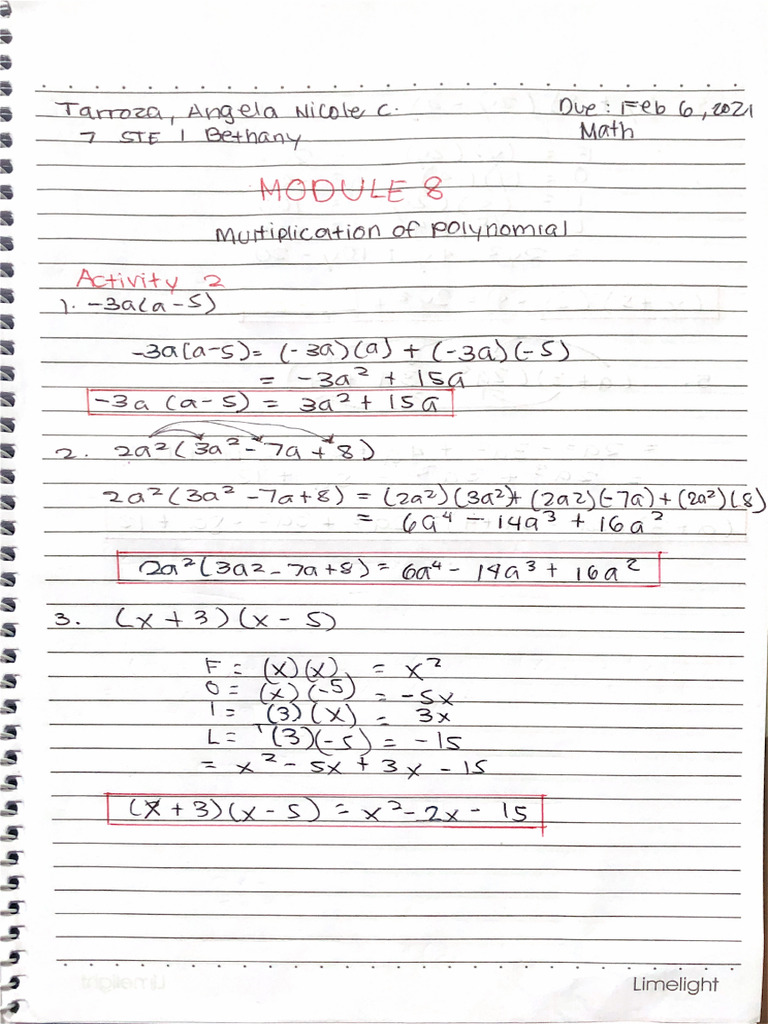 Tarroza, Angela Nicole C. Due: Feb 6, 2021
7 STE 1 Bethany Math
MODULE 8
Multiplication of polynomial
Activity 2
1. -3a(a-5)
-3a(a-5) = (-3a)(a) + (-3a)(-5)
= -3a² + 15a
-3a (a-5) = 3a² + 15a
2. 2a²(3a² - 7a + 8)
2a²(3a² - 7a + 8) = (2a²)(3a²) + (2a2)(-7a) + (2a²)(8)
= 6a⁴ - 14a³ + 16a²
2a²(3a2 - 7a + 8) = 6a⁴ - 14a³ + 16a²
3. (x + 3)(x - 5)
F = (x)(x) = x²
O = (x)(-5) = -5x
I = (3)(x) = 3x
L = (3)(-5) = -15
= x² - 5x + 3x - 15
(x + 3)(x - 5) = x² - 2x - 15
Limelight